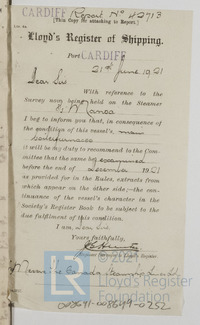 CARDIFF Report No 42713
(This Copy for attaching to Report.)
Lloyd's Register of Shipping.
Port CARDIFF
21st June 1921
Dear Sir
With reference to the
Survey now being held on the Steamer
I beg to inform you that, in consequence of
the condition of this vessel's main
it will be my duty to recommend to the Com-
mittee that the same be examined
before the end of December 1921
as provided for in the Rules, extracts from
which appear on the other side,—the con-
tinuance of the vessel's character in the
Society's Register Book to be subject to the
due fulfilment of this condition.
I am, Dear Sir,
Yours faithfully,
© 2021
Lloyd's
Register
Foundation
008691-008699-0252